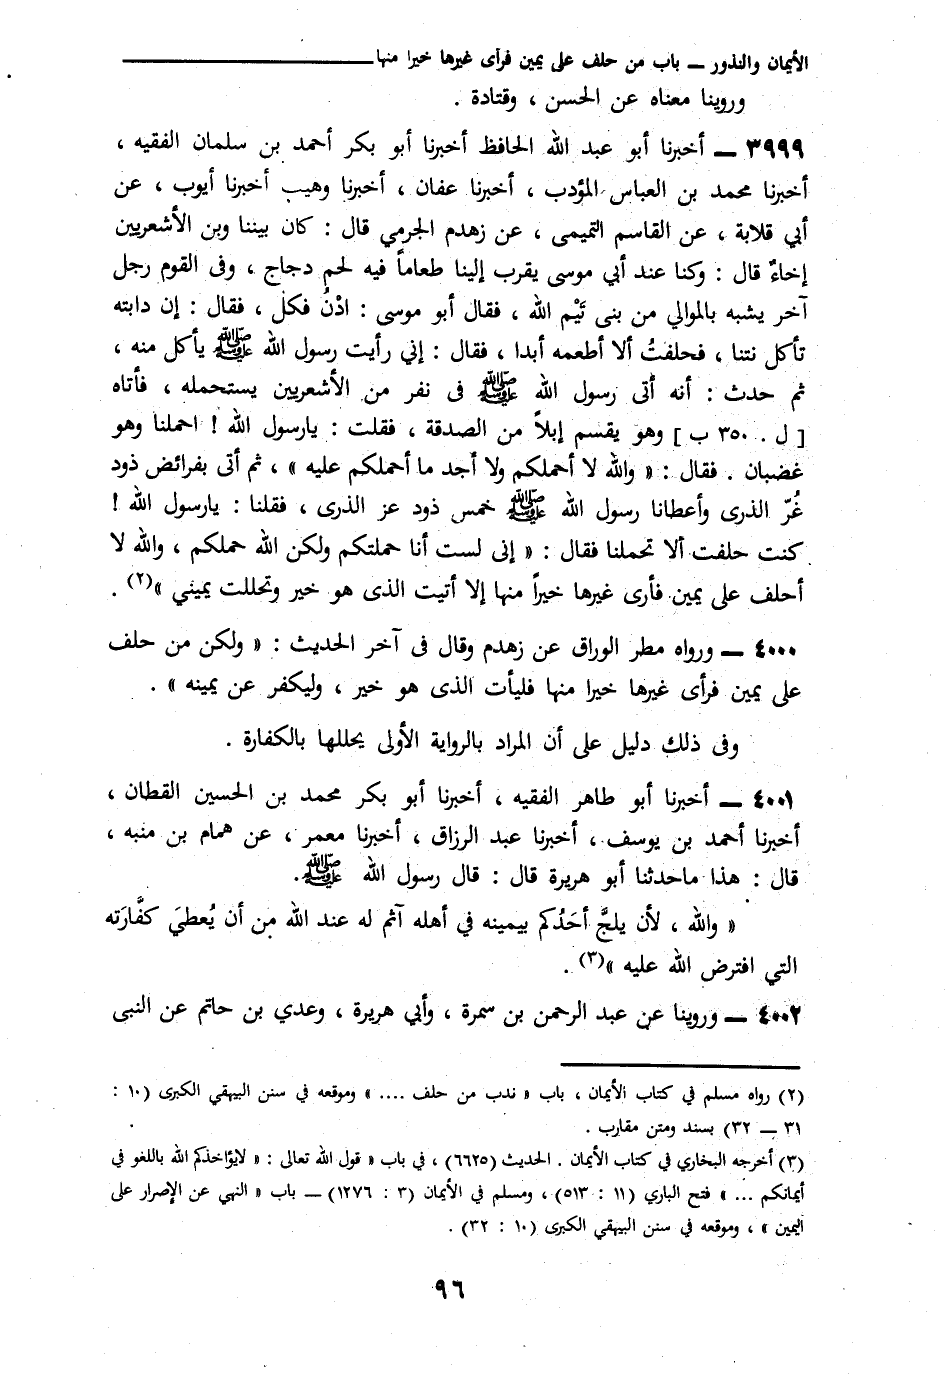 الأيمان والنذور — باب من حلف على يمين فرأى غيرها خيرا منها
وروينا معناه عن الحسن ، وقتادة .
٣٩٩٩ — أخبرنا أبو عبد الله الحافظ أخبرنا أبو بكر أحمد بن سلمان الفقيه ،
أخبرنا محمد بن العباس المؤدب ، أخبرنا عفان ، أخبرنا وهيب أخبرنا أيوب ، عن
أبي قلابة ، عن القاسم التميمى ، عن زهدم الجرمي قال : كان بيننا وبن الأشعريين
إخاءٌ قال : وكنا عند أبي موسى يقرب إلينا طعاماً فيه لحم دجاج ، وفى القوم رجل
آخر يشبه بالموالي من بنى تَيْم الله ، فقال أبو موسى : ادْنُ فكل ، فقال : إن دابته
تأكل نتنا ، فحلفتُ ألا أطعمه أبدا ، فقال : إني رأيت رسول الله ﷺ يأكل منه ،
ثم حدث : أنه أتى رسول الله ﷺ فى نفر من الأشعريين يستحمله ، فأتاه
[ ل . ٣٥٠ ب ] وهو يقسم إبلاً من الصدقة ، فقلت : يارسول الله ! احملنا وهو
غضبان . فقال : « والله لا أحملكم ولا أجد ما أحملكم عليه » ، ثم أتى بفرائض ذود
غُرّ الذرى وأعطانا رسول الله ﷺ خمس ذود عز الذرى ، فقلنا : يارسول الله !
كنت حلفت ألا تحملنا فقال : « إنى لست أنا حملتكم ولكن الله حملكم ، والله لا
أحلف على يمين فأرى غيرها خيراً منها إلا أتيت الذى هو خير وتحللت يميني »(٢) .
٤٠٠٠ — ورواه مطر الوراق عن زهدم وقال فى آخر الحديث : « ولكن من حلف
على يمين فرأى غيرها خيرا منها فليأت الذى هو خير ، وليكفر عن يمينه » .
وفى ذلك دليل على أن المراد بالرواية الأولى يحللها بالكفارة .
٤٠٠١ — أخبرنا أبو طاهر الفقيه ، أخبرنا أبو بكر محمد بن الحسين القطان ،
أخبرنا أحمد بن يوسف ، أخبرنا عبد الرزاق ، أخبرنا معمر ، عن همام بن منبه ،
قال : هذا ماحدثنا أبو هريرة قال : قال رسول الله ﷺ.
« والله ، لأن يلجَّ أحَدُكم بيمينه في أهله آثم له عند الله من أن يُعطيَ كفَّارَته
التي افترض الله عليه »(٣) .
٤٠٠٢ — وروينا عن عبد الرحمن بن سمرة ، وأبي هريرة ، وعدي بن حاتم عن النبى
(٢) رواه مسلم في كتاب الأيمان ، باب « ندب من حلف .... » وموقعه في سنن البيهقي الكبرى (١٠ :
٣١ — ٣٢) بسند ومتن مقارب .
(٣) أخرجه البخاري في كتاب الأيمان . الحديث (٦٦٢٥) ، في باب « قول الله تعالى : « لايؤاخذكم الله باللغو في
أيمانكم ... » فتح الباري (١١ : ٥١٣) ، ومسلم في الأيمان (٣ : ١٢٧٦) — باب « النهي عن الإصرار على
اليمين » ، وموقعه في سنن البيهقي الكبرى (١٠ : ٣٢) .
٩٦